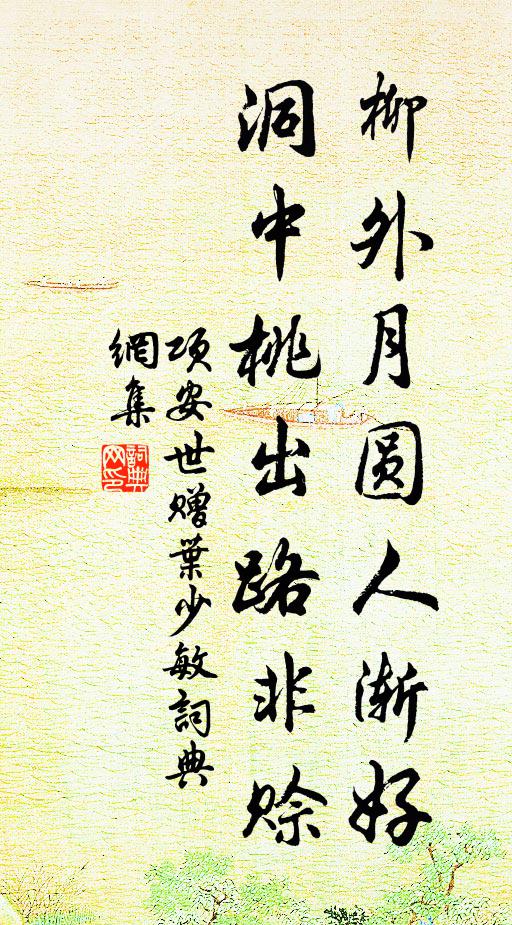 柳外月圆人渐好
洞中桃出路非赊
项安世赠葉少敏詞典
網集
詞典网印